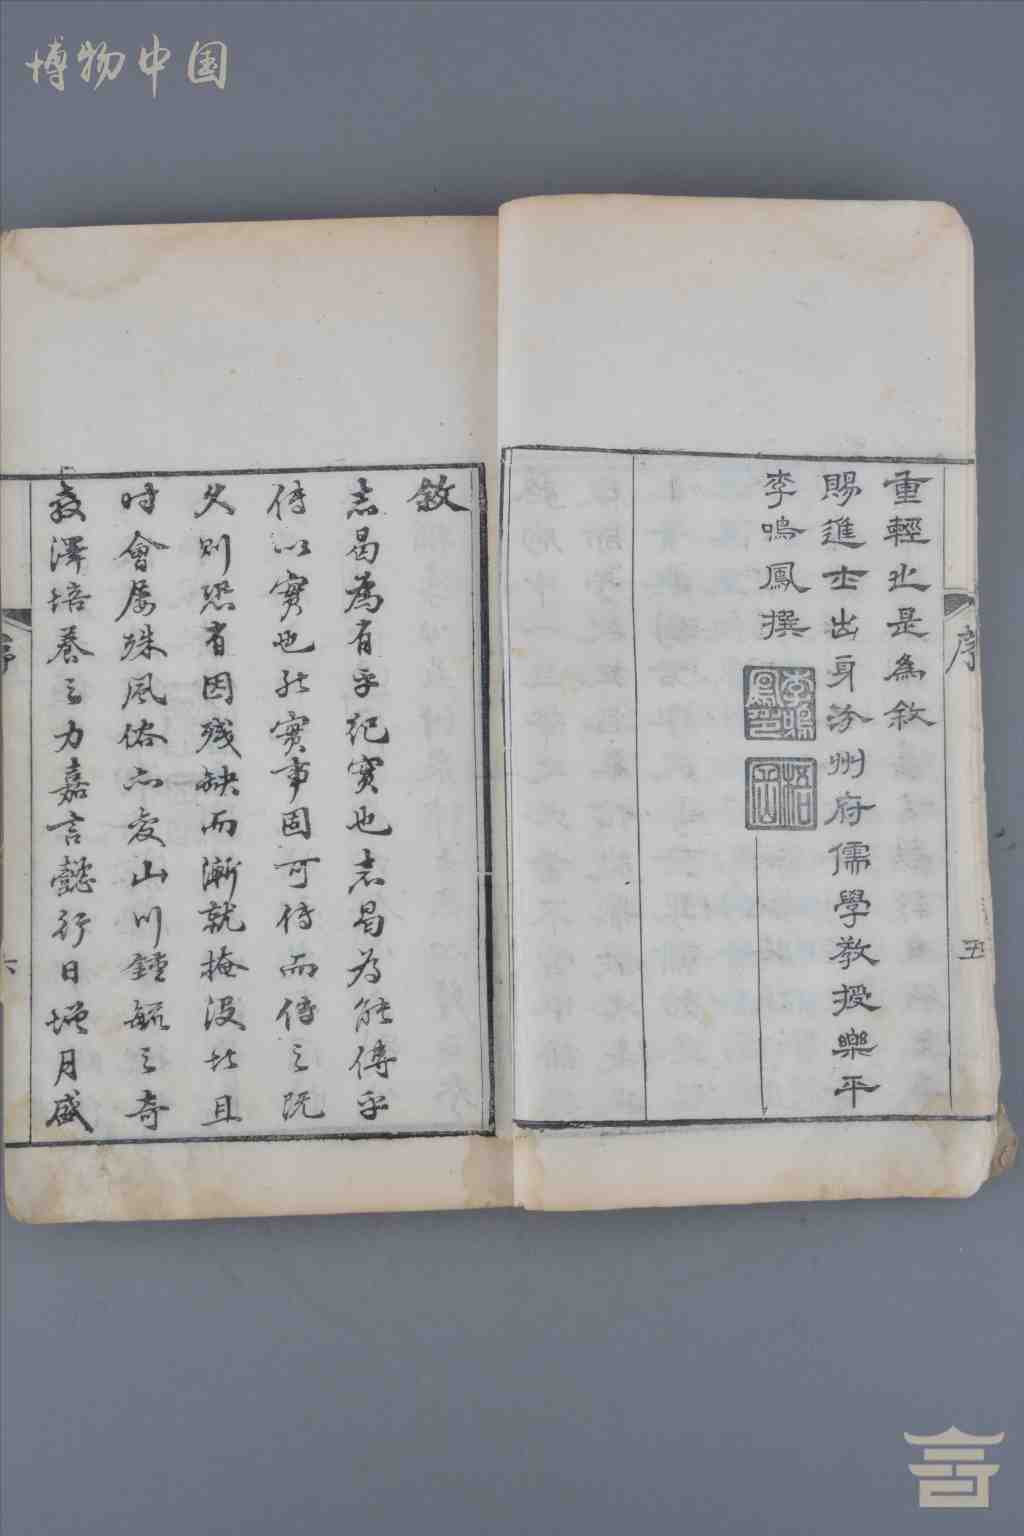 博物中国
重輕也是為敘
賜進士出身汾州府儒學教授樂平
李鳴鳳撰
李鳴鳳印
梧岡
序
五
敘
志曷為有乎紀實也志曷为能傳乎
傳以實也然實事固可傳而傳之既
久則恐有因殘缺而漸就掩沒者且
時會屢殊風俗亦变山川鍾毓之奇
教澤培養之力嘉言懿行日增月盛
序
六